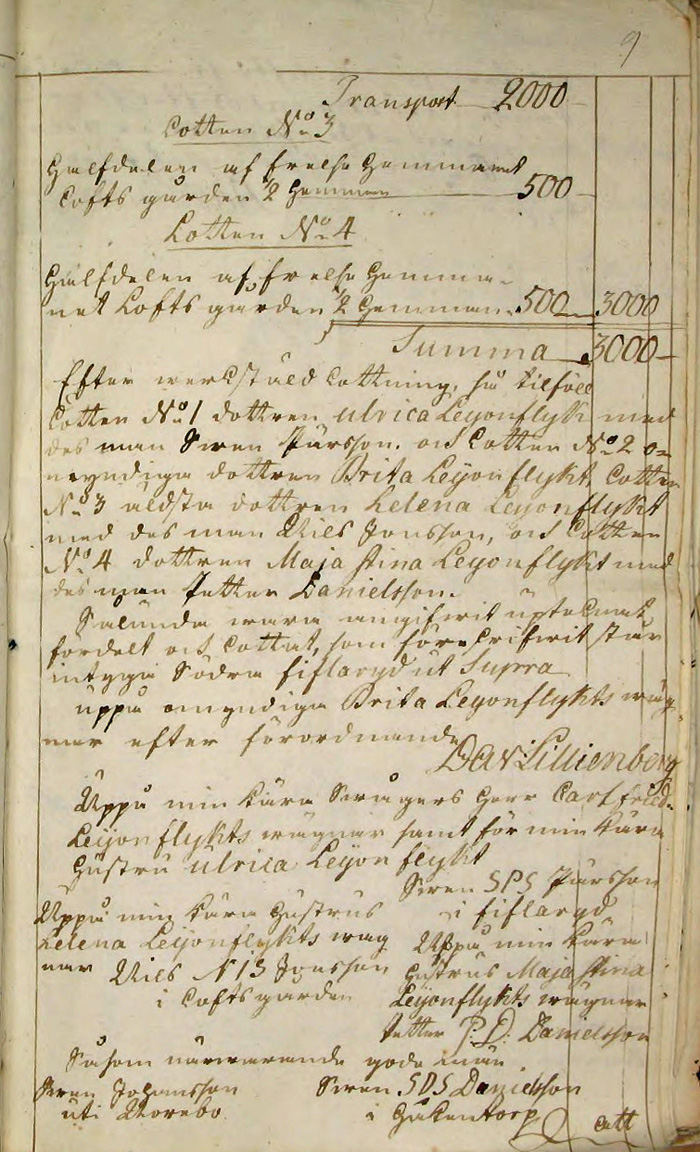 9
Transport 2000
Lotten No 3
Hälfdelen af frelse Hemmanet
Lofts gården 1/2 Hemman 500
Lotten No 4
Hälfdelen af frelse Hemma-
net Lofts gården 1/2 Hemman 500 3000
Summa 3000
Efter werckstäld Lottning, så tilföll
Lotten No 1 dottren Ulrica Leyonflykt med
des man Swen Pärsson. och Lotten No 2 o-
myndiga dottren Brita Leijonflykt, Lotten
No 3 äldsta dottren Helena Leyonflykt
med des man Nils Jonsson, och Lotten
No 4 dottren Maja Stina Leyonflykt med
des man Petter Danielsson.
Sålunda wara angifwit uptecknat
fördelt och Lottat, som föreskrifwit står
intyga Södra Fiflaryd ut Supra
uppå omyndiga Brita Leyonflykts wäg
nar efter förordnande
Dav: Lillienberg
Uppå min kära Swågers Herr Carl Fried-
Leijonflykts wägnar samt för min kära
Hustru Ulrica Leijonflykt
Swen SPS Pärsson
i Fiflaryd
Uppå min kära Hustrus
Helena Leijonflykts wäg
nar Nils NIS Jonsson
i Loftsgården
Uppå min kära
Hustrus Maja Stina
Leyonflykts wägnar
Petter P: D: Danielsson
Såsom närwarande gode män
Swen Johansson
uti Norebo
Swen SDS Danielsson
i Håkentorp
att